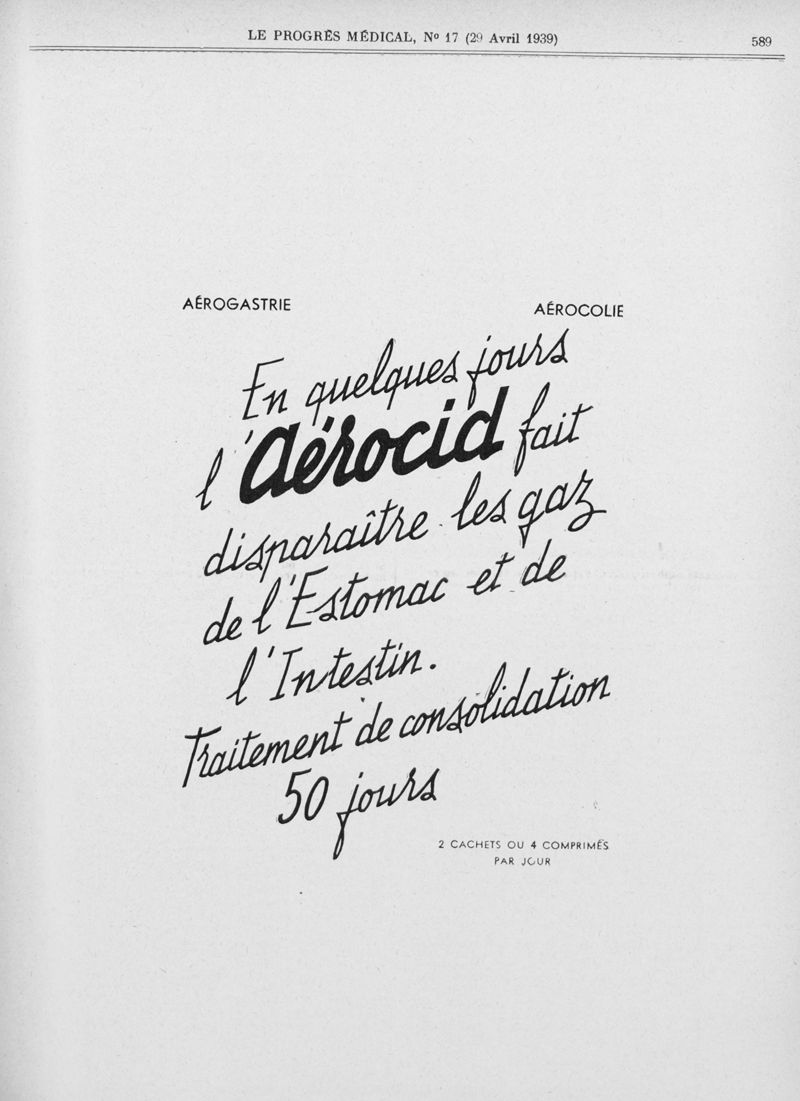 LE PROGRÈS MÉDICAL, Nº 17 (29 Avril 1939)
589
AÉROGASTRIE
AÉROCOLIE
En quelques jours
l'Aérocid fait
disparaître les gaz
de l'Estomac et de
l'Intestin.
Traitement de consolidation
50 jours
2 CACHETS OU 4 COMPRIMÉS
PAR JOUR